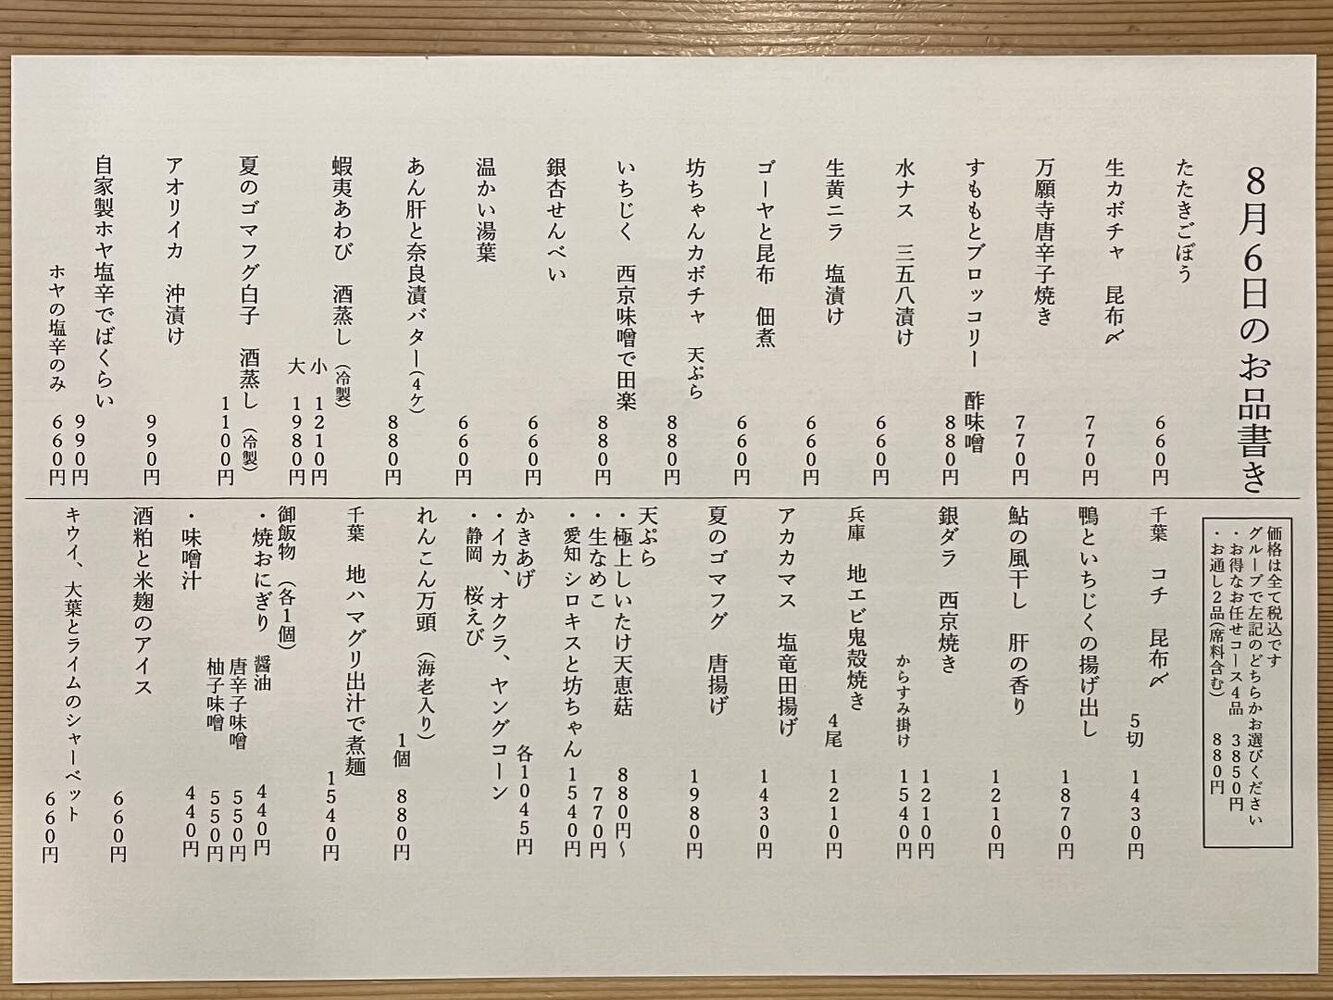 8月6日のお品書き
たたきごぼう 660円
生カボチャ 昆布〆 770円
万願寺唐辛子焼き 770円
すももとブロッコリー 酢味噌 880円
水ナス 三五八漬け 660円
生黄ニラ 塩漬け 660円
ゴーヤと昆布 佃煮 660円
坊ちゃんカボチャ 天ぷら 880円
いちじく 西京味噌で田楽 880円
銀杏せんべい 660円
温かい湯葉 660円
あん肝と奈良漬バター(4ケ) 880円
蝦夷あわび 酒蒸し(冷製)
小 1210円
大 1980円
夏のゴマフグ白子 酒蒸し(冷製) 1100円
アオリイカ 沖漬け 990円
自家製ホヤ塩辛でばくらい 990円
ホヤの塩辛のみ 660円
価格は全て税込です
グループで左記のどちらかお選びください
・お得なお任せコース4品 3850円
・お通し2品(席料含む) 880円
千葉 コチ 昆布〆 5切 1430円
鴨といちじくの揚げ出し 1870円
鮎の風干し 肝の香り 1210円
銀ダラ 西京焼き 1210円
からすみ掛け 1540円
兵庫 地エビ鬼殻焼き 4尾 1210円
アカカマス 塩竜田揚げ 1430円
夏のゴマフグ 唐揚げ 1980円
天ぷら
・極上しいたけ天恵菇 880円〜
・生なめこ 770円
・愛知 シロキスと坊ちゃん 1540円
かきあげ 各1045円
・イカ、オクラ、ヤングコーン
・静岡 桜えび
れんこん万頭(海老入り) 1個 880円
千葉 地ハマグリ出汁で煮麺 1540円
御飯物(各1個)
・焼おにぎり 醤油 440円
唐辛子味噌 550円
柚子味噌 550円
・味噌汁 440円
酒粕と米麹のアイス 660円
キウイ、大葉とライムのシャーベット 660円